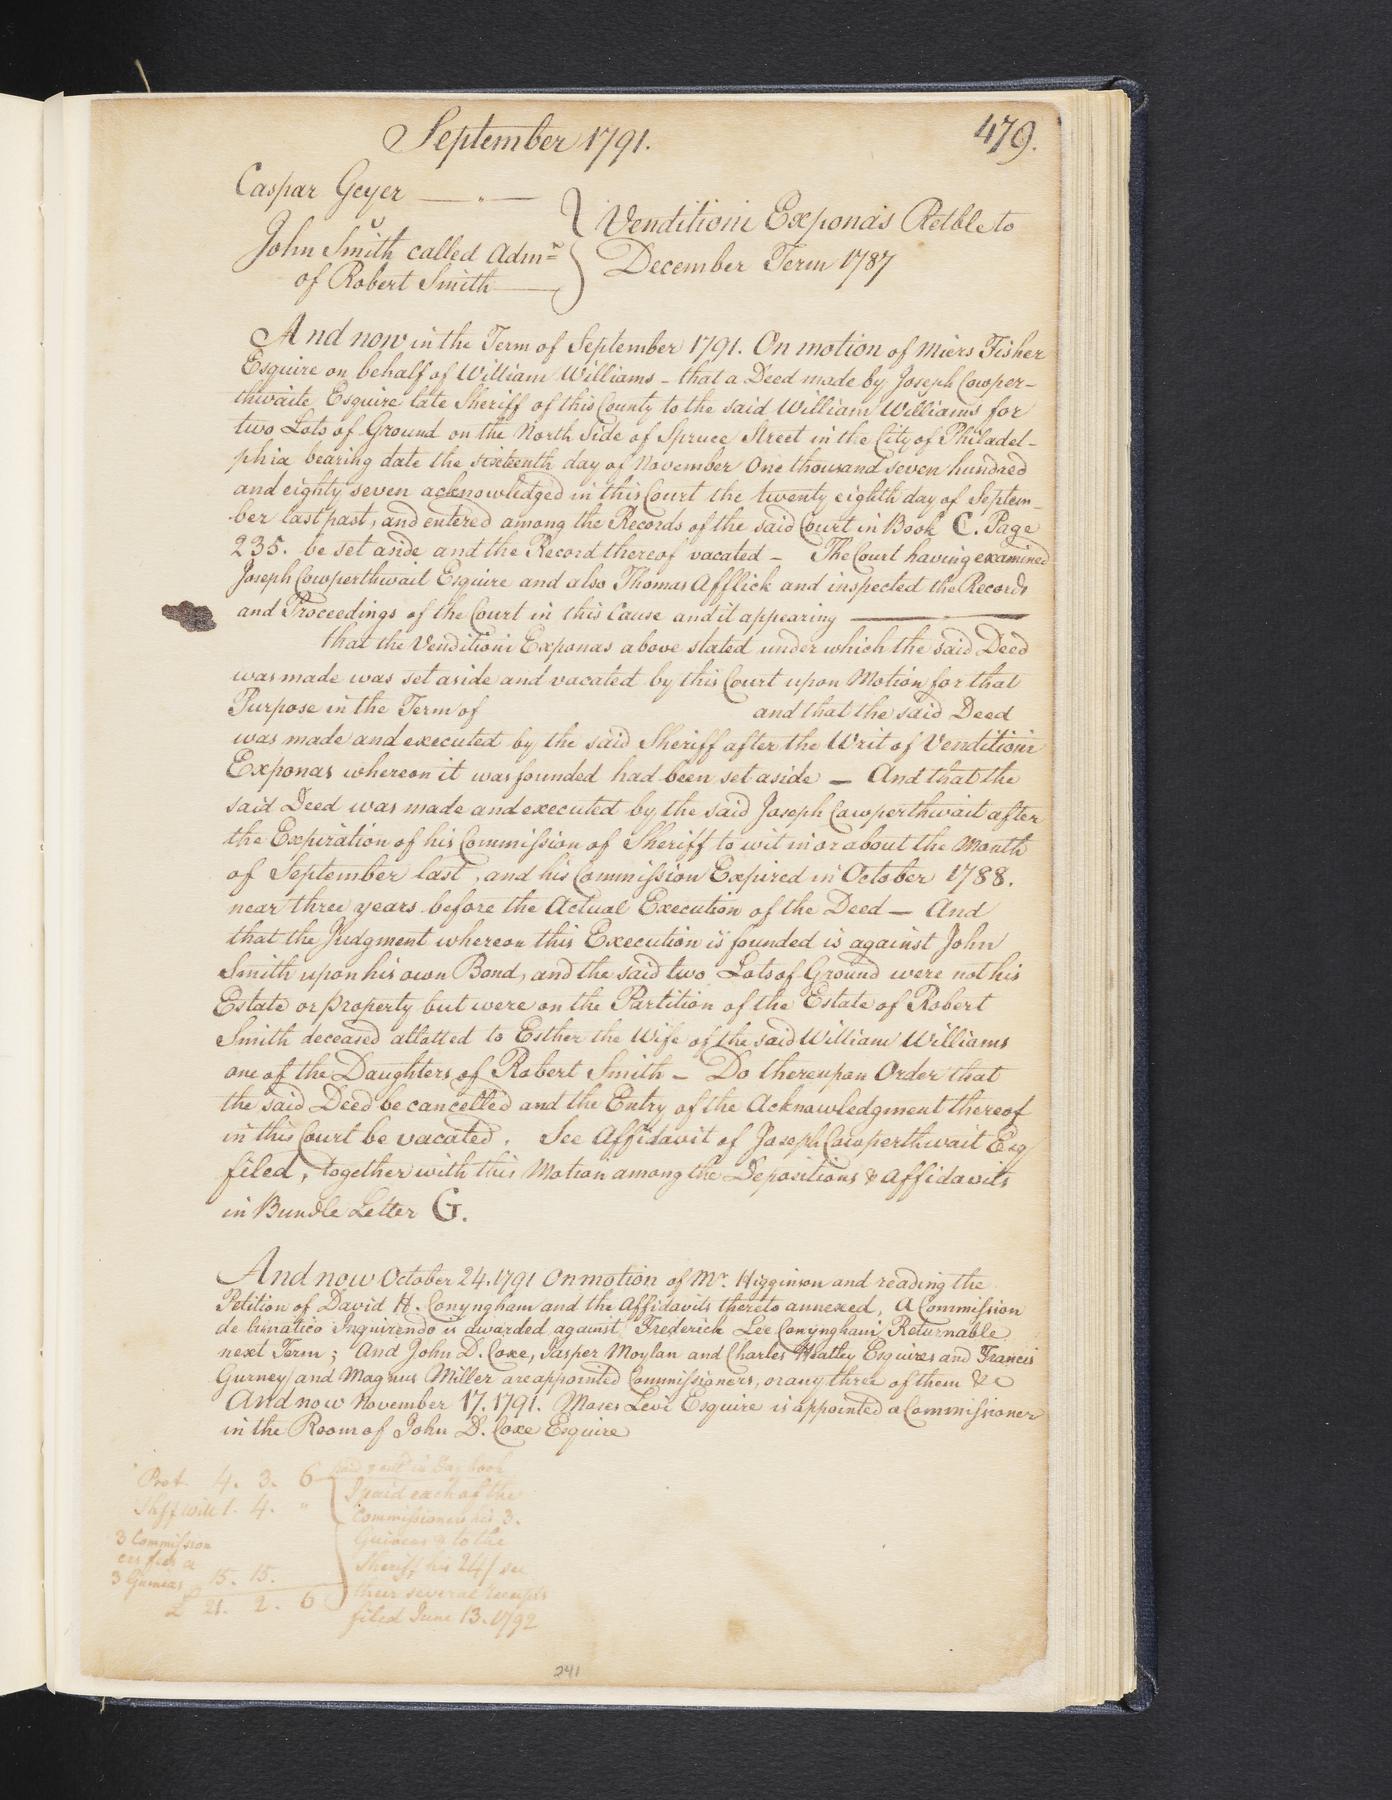 479.
September 1791.
Caspar Geyer
v
John Smith called Admr
of Robert Smith
Venditioni Exponas Retble to
December Term 1787
And now in the Term of September 1791. On motion of Miers Fisher
Esquire on behalf of William Williams - that a Deed made by Joseph Cowper-
thwaite Esquire late Sheriff of this County to the said William Williams for
two Lots of Ground on the North Side of Spruce Street in the City of Philadel-
phia bearing date the sixteenth day of November One thousand seven hundred
and eighty seven acknowledged in this Court the twenty eighth day of Septem-
ber last past, and entered among the Records of the said Court in Book C. Page
235. be set aside and the Record thereof vacated - The Court having examined
Joseph Cowperthwait Esquire and also Thomas Afflick and inspected the Records
and Proceedings of the Court in this Cause and it appearing
that the Venditioni Exponas above stated under which the said Deed
was made was set aside and vacated by this Court upon Motion for that
Purpose in the Term of and that the said Deed
was made and executed by the said Sheriff after the Writ of Venditioni
Exponas whereon it was founded had been set aside - And that the
said Deed was made and executed by the said Joseph Cowperthwait after
the Expiration of his Commission of Sheriff to wit in or about the Month
of September last, and his Commission Expired in October 1788.
near three years before the Actual Execution of the Deed - And
that the Judgment whereon this Execution is founded is against John
Smith upon his own Bond, and the said two Lots of Ground were not his
Estate or property but were on the Partition of the Estate of Robert
Smith deceased allotted to Esther the Wife of the said William Williams
one of the Daughters of Robert Smith - Do thereupon Order that
the said Deed be cancelled and the Entry of the Acknowledgment thereof
in this Court be vacated. See Affidavit of Joseph Cowperthwait Esq
filed, together with this Motion among the Depositions & Affidavits
in Bundle Letter G.
And now October 24. 1791 On motion of Mr. Higginson and reading the
Petition of David H. Conyngham and the Affidavits thereto annexed, A Commission
de lunatico Inquirendo is awarded against Frederick Lee Conyngham Returnable
next Term; And John D. Coxe, Jasper Moylan and Charles Heatley Esquires and Francis
Gurney and Magnus Miller are appointed Commissioners, or any three of them &c
And now November 17. 1791. Moses Levi Esquire is appointed a Commissioner
in the Room of John D. Coxe Esquire
Prot 4. 3. 6
Shff 1. 4. "
3 Commission
ers fees a
3 Guineas 15. 15.
£ 21. 2. 6
in Day book
I paid each of the
Commissioners his 3.
Guineas & to the
Sheriff his 24/ see
their several receipts
filed June 13. 1792
241